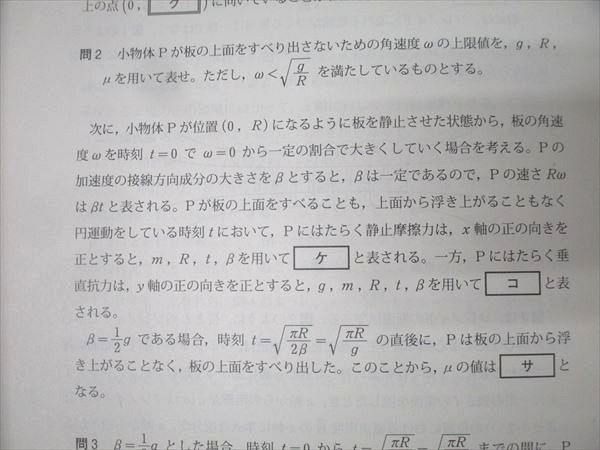 上の点(0, ク)に向いていることが
問2 小物体Pが板の上面をすべり出さないための角速度ωの上限値を, g, R,
μを用いて表せ。ただし, ω<√(g/R) を満たしているものとする。
次に, 小物体Pが位置(0, R)になるように板を静止させた状態から, 板の角速
度ωを時刻 t=0 で ω=0 から一定の割合で大きくしていく場合を考える。Pの
加速度の接線方向成分の大きさをβとすると, βは一定であるので, Pの速さ Rω
は βt と表される。Pが板の上面をすべることも, 上面から浮き上がることもなく
円運動をしている時刻 t において, Pにはたらく静止摩擦力は, x軸の正の向きを
正とすると, m, R, t, βを用いて ケ と表される。一方, Pにはたらく垂
直抗力は, y軸の正の向きを正とすると, g, m, R, t, βを用いて コ と表
される。
β=1/2 g である場合, 時刻 t=√(πR/2β)=√(πR/g) の直後に, Pは板の上面から浮
き上がることなく, 板の上面をすべり出した。このことから, μの値は サ と
なる。
問3 β=1/2 g とした場合, 時刻 t=0 から t=√(πR/2β)=√(πR/g) までの間に, P